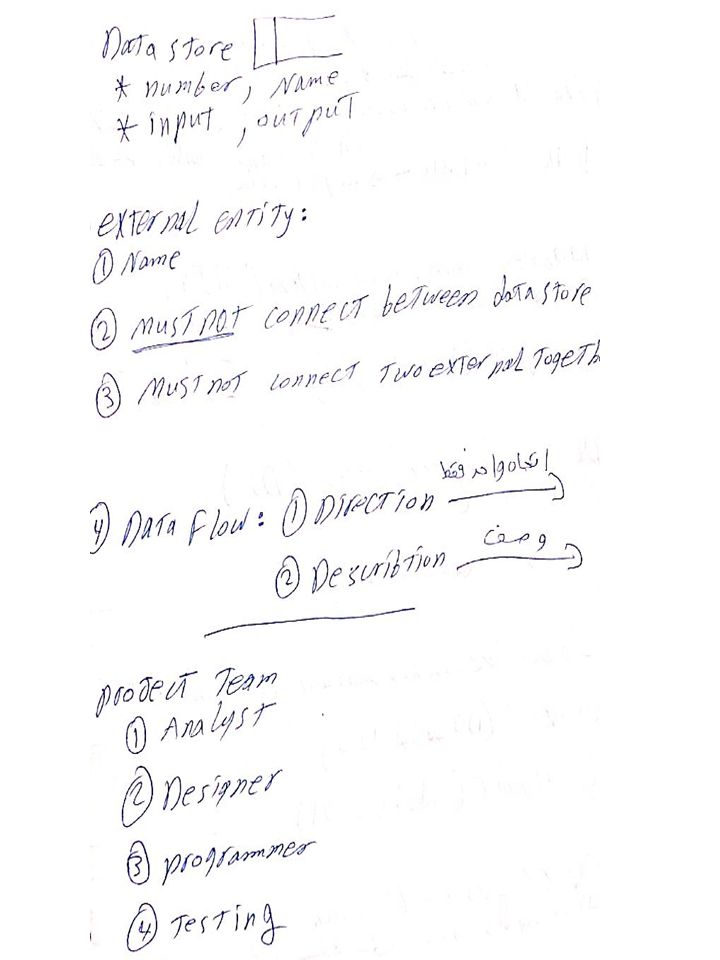 Data store
* number, Name
* input, output
external entity:
① Name
② Must not connect between data store
③ Must not connect two external togeth
4) Data Flow: ① Direction اتجاه واحد فقط
② Describtion وصف
project Team
① Analyst
② Designer
③ programmer
④ Testing